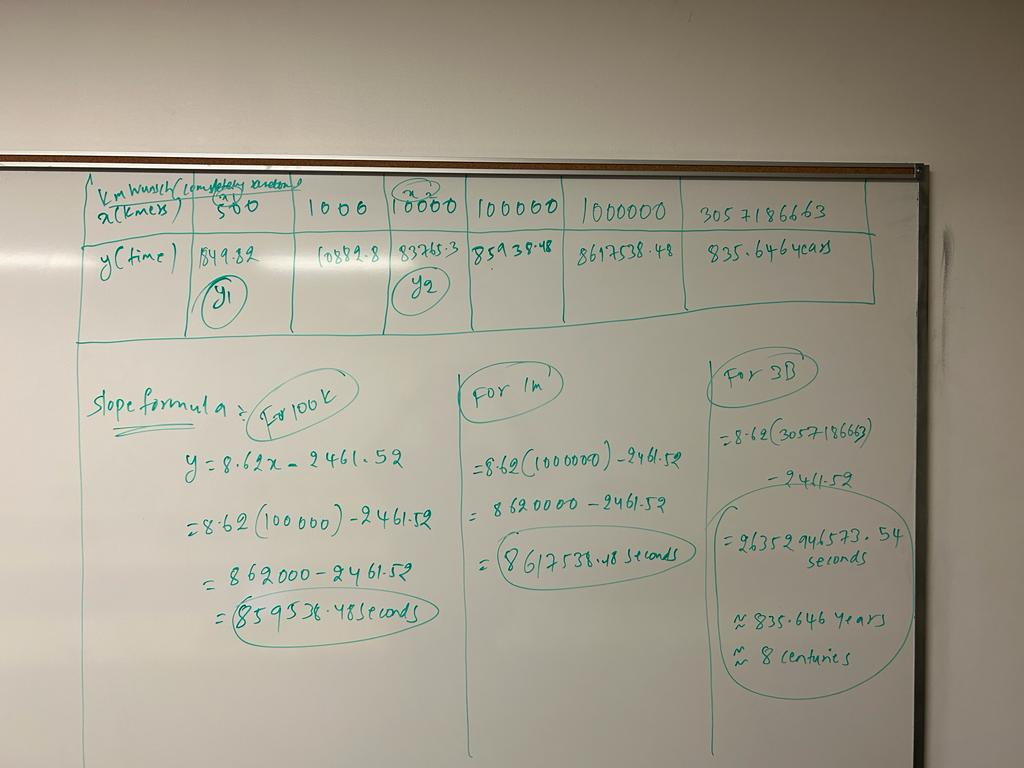 KmWunsch (completely random)
x(kmers) (x1) 500 1000 (x2) 10000 100000 1000000 3057186663
y(time) 1849.82 10882.8 83765.3 85938.48 8617538.48 835.646 years
y1 y2
Slope formula :- For 100k
y = 8.62x - 2461.52
= 8.62 (100000) - 2461.52
= 862000 - 2461.52
= 859538.48 seconds
For 1m
= 8.62 (1000000) - 2461.52
= 8620000 - 2461.52
= 8617538.48 seconds
For 3B
= 8.62 (3057186663)
- 2461.52
= 26352946573.54
seconds
≈ 835.646 years
≈ 8 centuries